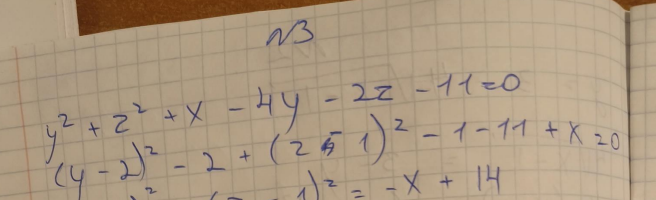 N3
y² + z² + x - 4y - 2z - 11 = 0
(y - 2)² - 2 + (z - 1)² - 1 - 11 + x = 0
² 1)² = -x + 14